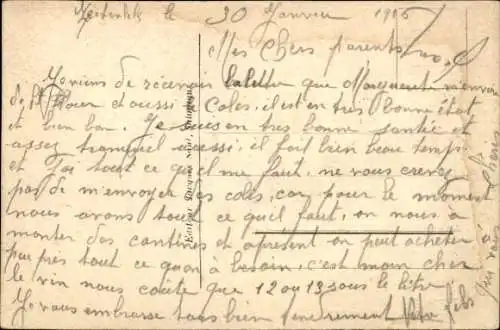 le 30 Janvier 1916
Mes Chers parents
Je viens de recevoir la lettre que Marguerite m'envoie
de St flour et aussi Coles, il est en très bonne état
et bien bon. Je suis en tres bonne santée et
assez tranquil aussi, il fait bien beau temp
et J'ai tout ce qu'il me faut, ne vous creyez
pas de m'envoyer des colis, car pour le moment
nous avons tout ce qu'il faut, on nous a
monter des cantines et apresent on peut acheter à
peu près tout ce quon à besoin, c'est moin cher
le vin nous coute que 12 ou 13 sous le litre
Je vous embrasse tous bien tendrement Votre fils